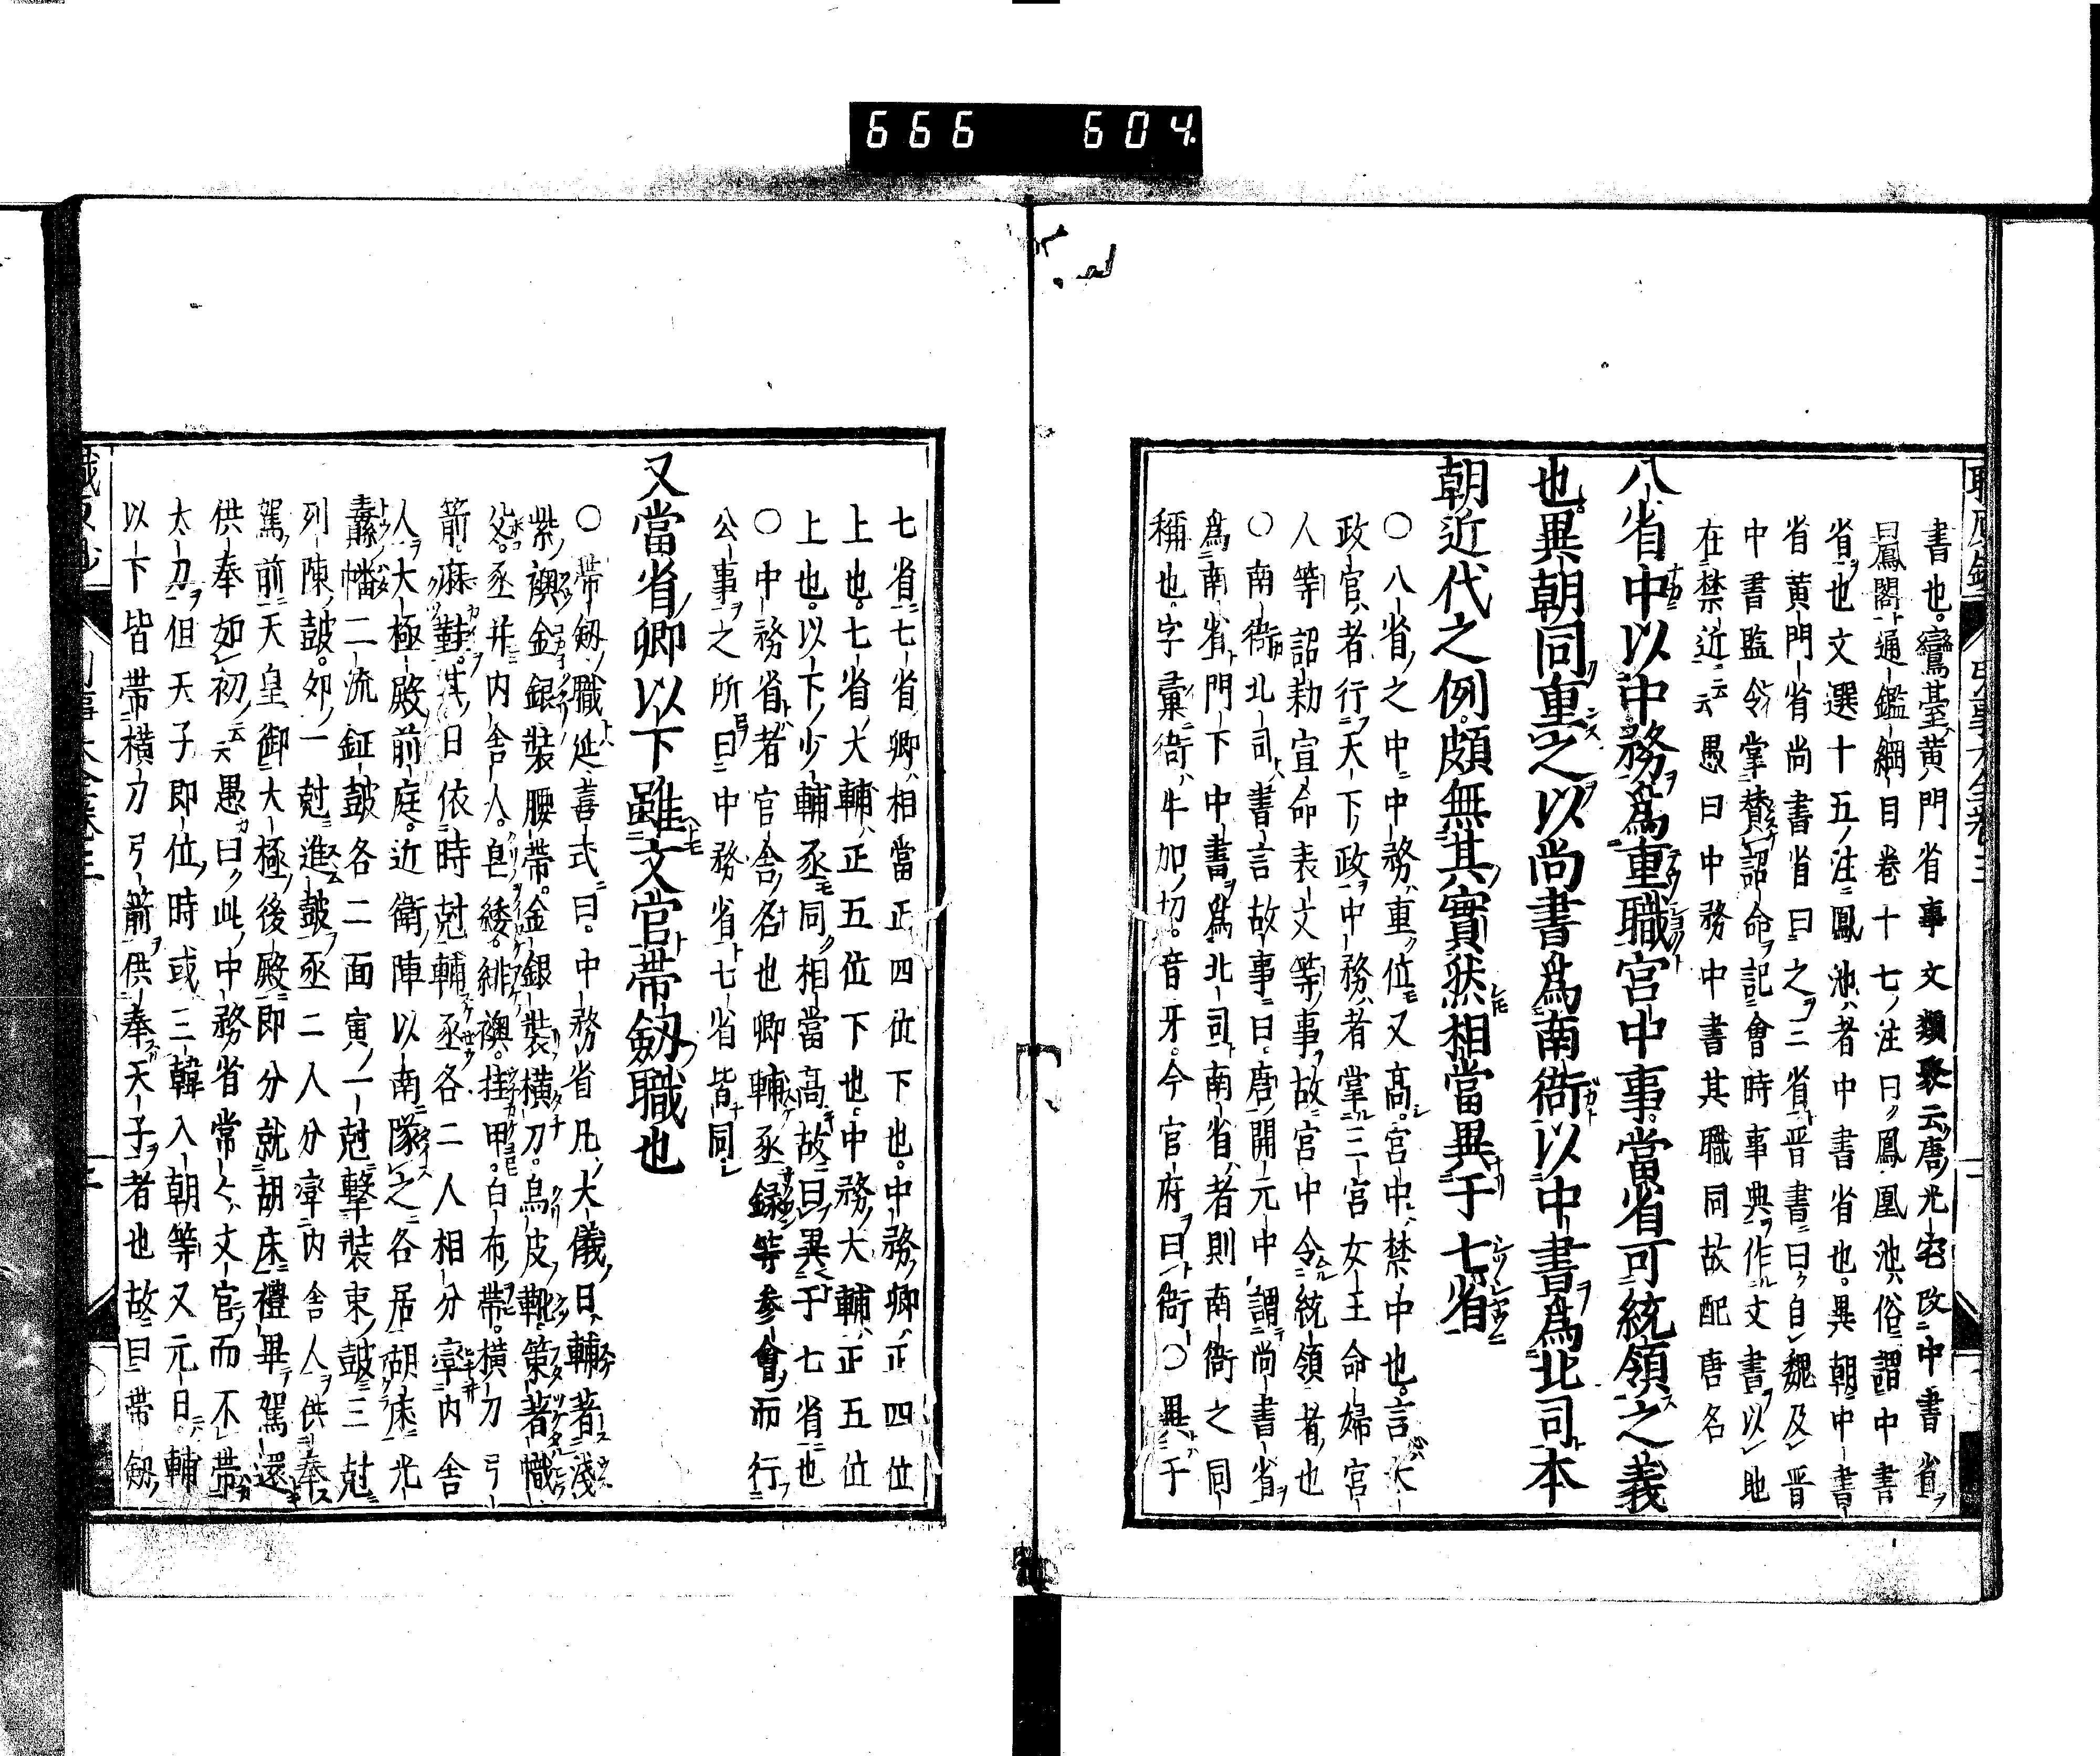 666 604
書也。鸞臺黄門省事文類聚云唐光宅改中書省
曰鳳閣通鑑綱目巻十七注曰鳳凰池俗謂中書
省也文選十五注鳳池者中書省也。異朝中書
省黄門省尚書省曰之三省晋書曰自魏及晋
中書監令掌賛詔命記會時事典作文書以地
在禁近云云愚曰中務中書其職同故配唐名
八省中以中務為重職宮中事當省可統領之義
也異朝同重之以尚書為南衙以中書為北司本
朝近代之例頗無其實然相當異于七省
〇八省之中中務重位又高。宮中禁中也。言太
政官者行天下政中務者掌三宮女王命婦宮
人等詔勅宣命表文等事故宮中令統領者也
〇南衙北司書言故事曰。唐開元中謂尚書省
為南省門下中書為北司南省者則南衙之同
稱也。字彙衙牛加切。音牙。今官府曰衙〇異于
七省七省卿相當正四位下也。中務卿正四位
上也。七省大輔正五位下也。中務大輔正五位
上也。以下少輔丞同相當高故曰異于七省也
〇中務省者官舎名也卿輔丞録等参會而行
公事之所曰中務省七省皆同。
又當省卿以下雖文官帶劒職也
〇帶劒職延喜式曰。中務省凡大儀日輔者淺
紫襖金銀装腰帶。金銀装横刀。烏皮靴策著幟
殳。丞并内舎人。皂緌。緋襖。挂甲。白布帶。横刀弓
箭。麻鞋。其日依時尅輔丞各二人相分率内舎
人大極殿前庭。近衛陣以南隊之各居胡床光
纛幡二流鉦鼓各二面寅一尅撃装束鼓三尅
列陳鼓。卯一尅進鼓丞二人分率内舎人供奉
駕前天皇御大極後殿即分就胡床禮畢駕還
供奉如初云云愚曰此中務省常ハ文官而不帶
太刀但天子即位時或三韓入朝等又元日輔
以下皆帶横刀弓箭供奉天子者也故曰帶劒